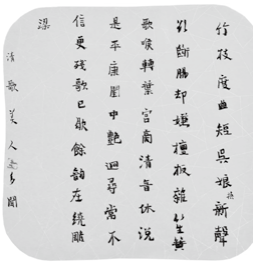 竹枝度曲短吳娘新聲
引斷腸却嫌檀板雜笙簧
歌喉轉葉宮商清音休說
是平康中艷迴尋常不
信更殘歌已歇餘韵在繞雕
梁
清歌美人